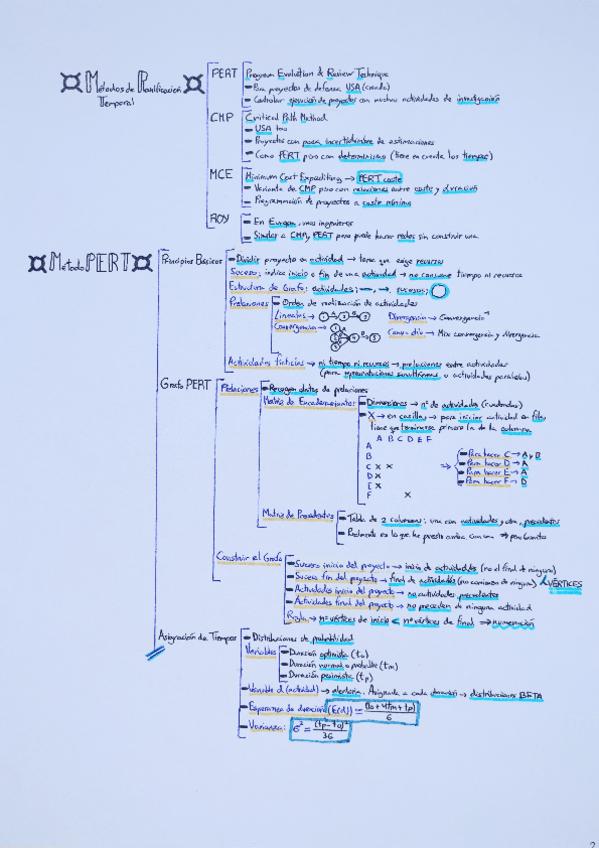 Métodos de Planificación
Temporal
PERT
Program Evaluation & Review Technique
Para proyectos de defensa USA (creado)
Controlar ejecución de proyectos con muchas actividades de investigación
CMP
Critical Path Method
USA too
Proyectos con poca incertidumbre de estimaciones
Como PERT pero con determinismo (tiene en cuenta los tiempos)
MCE
Minimum Cost Expediting → PERT coste
Variante de CMP pero con relaciones entre coste y duración
Programación de proyectos a coste mínimo
ROY
En Europa, unos ingenieros
Similar a CMP, PERT pero puede hacer redes sin construir una.
Método PERT
Principios Básicos
Dividir proyecto en actividad → tarea que exige recursos
Suceso: indica inicio o fin de una actividad → no consume tiempo ni recursos
Estructura de Grafo: actividades: —, →. sucesos:
Prelaciones
Orden de realización de actividades
Lineales →
Convergencia →
Divergencia → Convergencia⁻¹
Conv-div → Mix convergencia y divergencia.
Actividades ficticias → ni tiempo ni recursos → prelaciones entre actividades
(para representaciones simultáneas, o actividades paralelas)
Grafo PERT
Prelaciones
Recogen datos de prelaciones
Matriz de Encadenamientos
Dimensiones → nº de actividades (cuadradas)
X → en casilla, → para iniciar actividad en fila,
tiene que terminarse primero la de la columna
A B C D E F
A
B
C X X
D X
E X
F X
⇒
Para hacer C → A y B
Para hacer D → A
Para hacer E → A
Para hacer F → D
Matriz de Precedentes
Tabla de 2 columnas: una con actividades y otra, precedentes
Construir el Grafo
Suceso inicio del proyecto → inicio de actividades (no el final de ninguna)
Suceso fin del proyecto → final de actividades (no comienzo de ninguna)
VÉRTICES
Actividades inicio del proyecto → no actividades precedentes
Actividades final del proyecto → no preceden de ninguna actividad
Regla → nº vértices de inicio < nº vértices de final ⇒ numeración
Asignación de Tiempos
Distribuciones de probabilidad
Variables
Duración optimista (to)
Duración normal o probable (tm)
Duración pesimista (tp)
Variable d (actividad) → aleatoria. Asignada a cada duración → distribuciones BETA
Esperanza de duración (E(d)) = (to + 4tm + tp) / 6
Varianza: σ² = (tp - to)² / 36
2